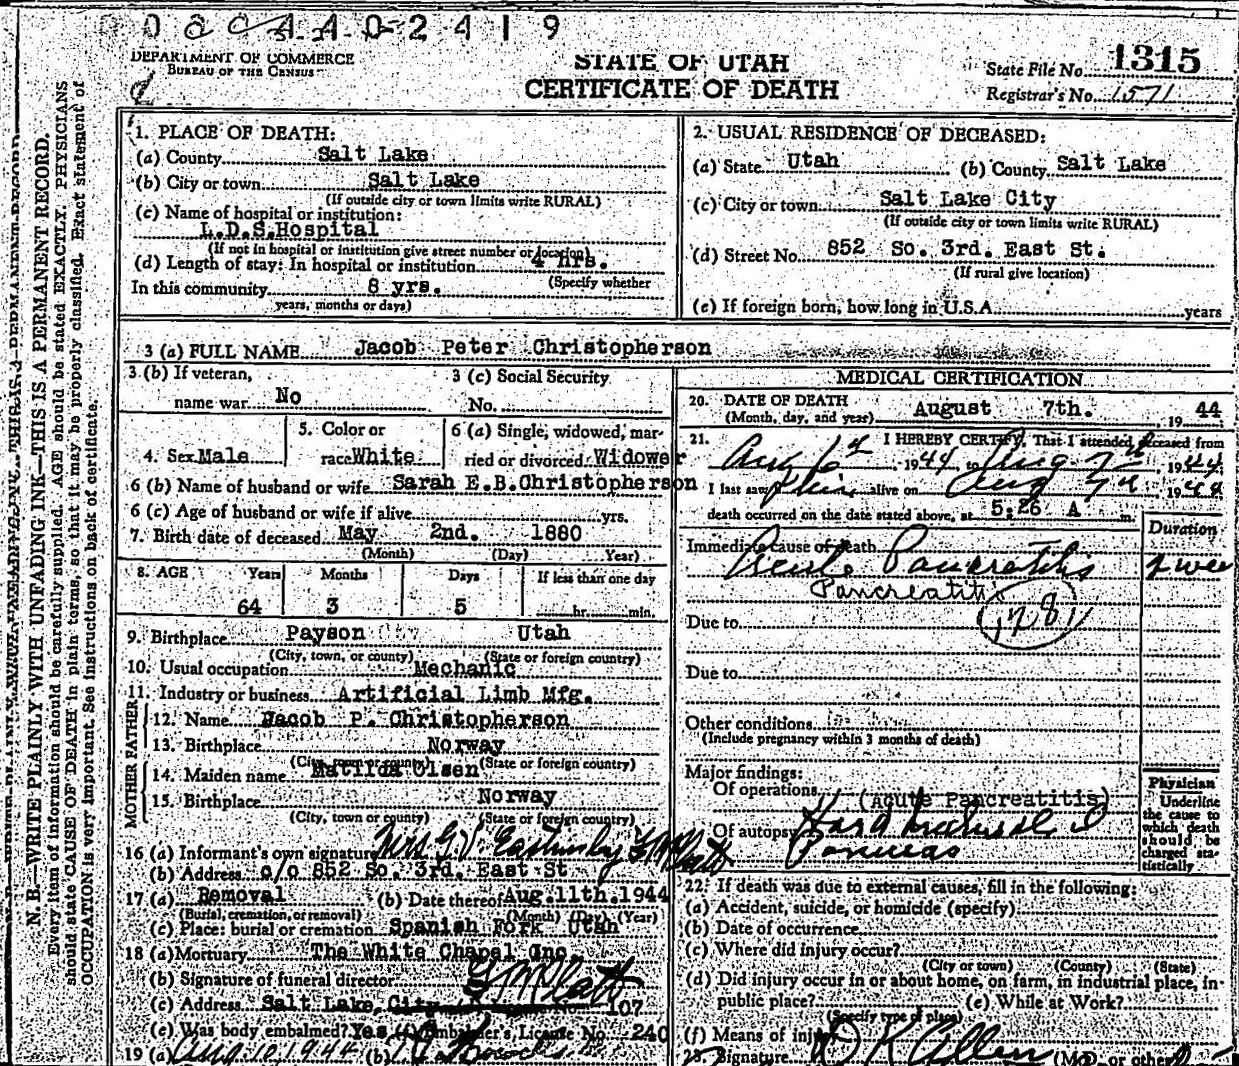 DEPARTMENT OF COMMERCE
BUREAU OF THE CENSUS
STATE OF UTAH
CERTIFICATE OF DEATH
State File No. 1315
Registrar's No. 1571
N. B.—WRITE PLAINLY WITH UNFADING INK—THIS IS A PERMANENT RECORD.
Every item of information should be carefully supplied. AGE should be stated EXACTLY. PHYSICIANS
should state CAUSE OF DEATH in plain terms, so that it may be properly classified. Exact statement of
OCCUPATION is very important. See instructions on back of certificate.
1. PLACE OF DEATH:
(a) County Salt Lake
(b) City or town Salt Lake
(If outside city or town limits write RURAL)
(c) Name of hospital or institution:
L.D.S.Hospital
(If not in hospital or institution give street number or location)
(d) Length of stay: In hospital or institution 4 hrs.
(Specify whether
In this community 8 yrs.
years, months or days)
2. USUAL RESIDENCE OF DECEASED:
(a) State Utah (b) County Salt Lake
(c) City or town Salt Lake City
(If outside city or town limits write RURAL)
(d) Street No. 852 So. 3rd. East St.
(If rural give location)
(e) If foreign born, how long in U.S.A. years
3 (a) FULL NAME Jacob Peter Christopherson
3 (b) If veteran, name war No
3 (c) Social Security No.
4. Sex Male
5. Color or race White
6 (a) Single, widowed, married or divorced Widower
6 (b) Name of husband or wife Sarah E.B.Christopherson
6 (c) Age of husband or wife if alive yrs.
7. Birth date of deceased May 2nd. 1880
(Month) (Day) Year)
8. AGE Years Months Days If less than one day
64 3 5 hr. min.
9. Birthplace Payson Utah
(City, town, or county) (State or foreign country)
10. Usual occupation Mechanic
11. Industry or business Artificial Limb Mfg.
FATHER
12. Name Jacob P. Christopherson
13. Birthplace Norway
(City, town or county) (State or foreign country)
MOTHER
14. Maiden name Matilda Olsen
15. Birthplace Norway
(City, town or county) (State or foreign country)
16 (a) Informant's own signature Mrs G.V.
(b) Address c/o 852 So. 3rd. East St
17 (a) Removal (b) Date thereof Aug.11th.1944
(Burial, cremation, or removal) (Month) (Day) (Year)
(c) Place: burial or cremation Spanish Fork Utah
18 (a) Mortuary The White Chapel Inc
(b) Signature of funeral director
(c) Address Salt Lake City 107
(e) Was body embalmed? Yes (f) Embalmer's License No. 240
19 (a) Aug 10, 1944 (b)
MEDICAL CERTIFICATION
20. DATE OF DEATH
(Month, day, and year) August 7th. 19 44
21. I HEREBY CERTIFY, That I attended deceased from
Aug 6th 1944, to Aug 7th 1944
I last saw him alive on Aug 7th 1944
death occurred on the date stated above, at 5:26 A m.
Duration
Immediate cause of death
Acute Pancreatitis
Pancreatitis
Due to
Due to
Other conditions
(Include pregnancy within 3 months of death)
Major findings:
Of operations (Acute Pancreatitis)
Of autopsy
Pancreas
Physician
Underline
the cause to
which death
should be
charged sta-
tistically
22. If death was due to external causes, fill in the following:
(a) Accident, suicide, or homicide (specify)
(b) Date of occurrence
(c) Where did injury occur?
(City or town) (County) (State)
(d) Did injury occur in or about home, on farm, in industrial place, in
public place? (e) While at Work?
(Specify type of place)
(f) Means of injury
23. Signature D K Allen (M.D. or other)